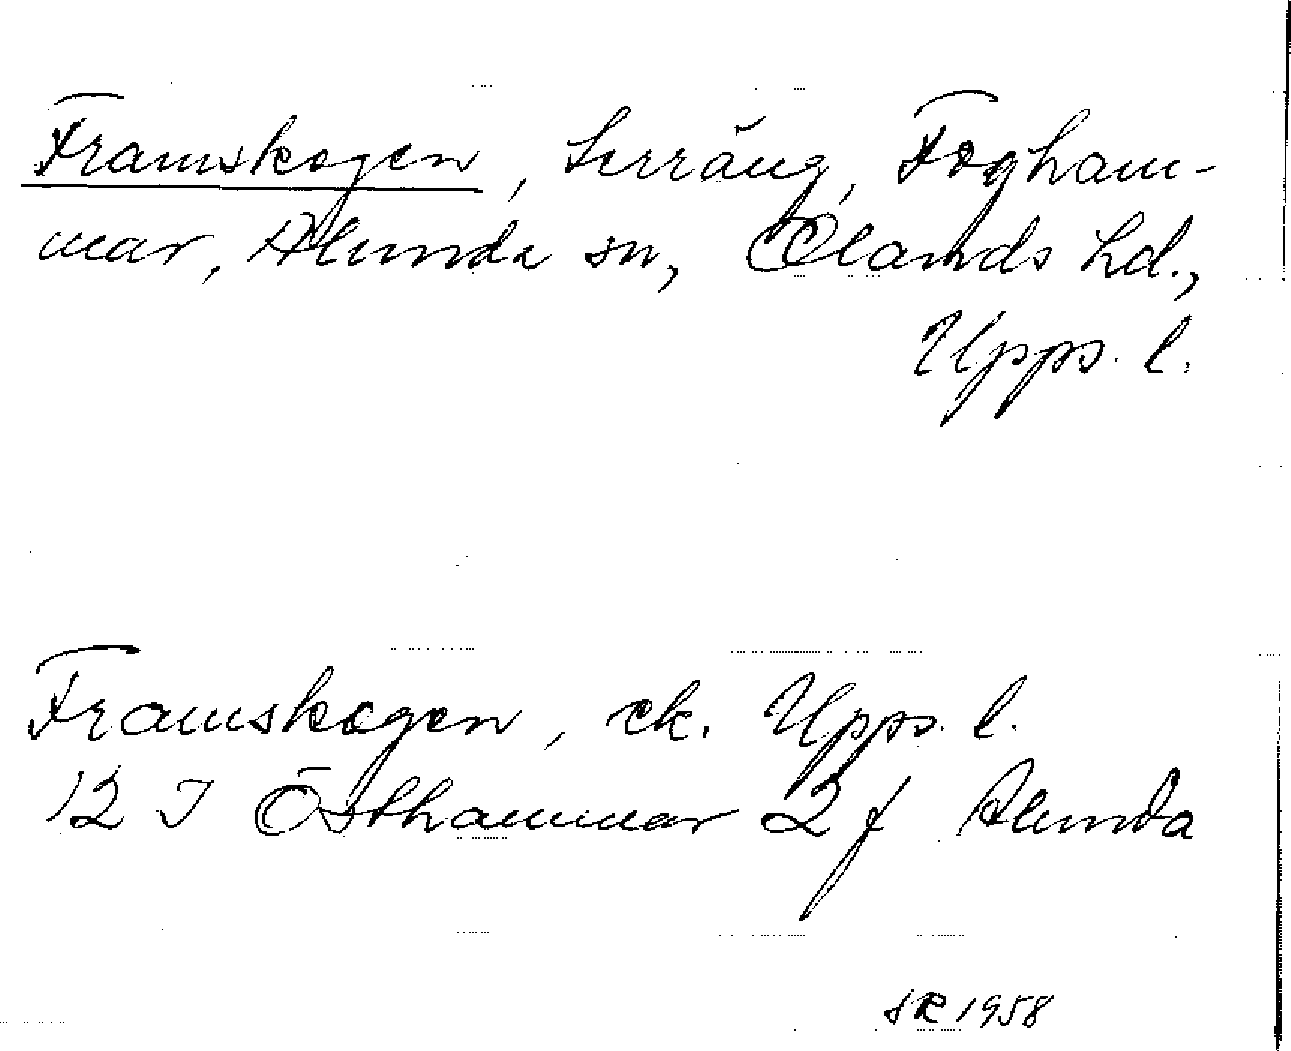 Framskogen, Lerräng, Fogham-
mar, Alunda sn, Olands hd.,
Upps. l.
Framskogen, ek. Upps. l.
12 I Östhammar 2 f Alunda
SR 1958